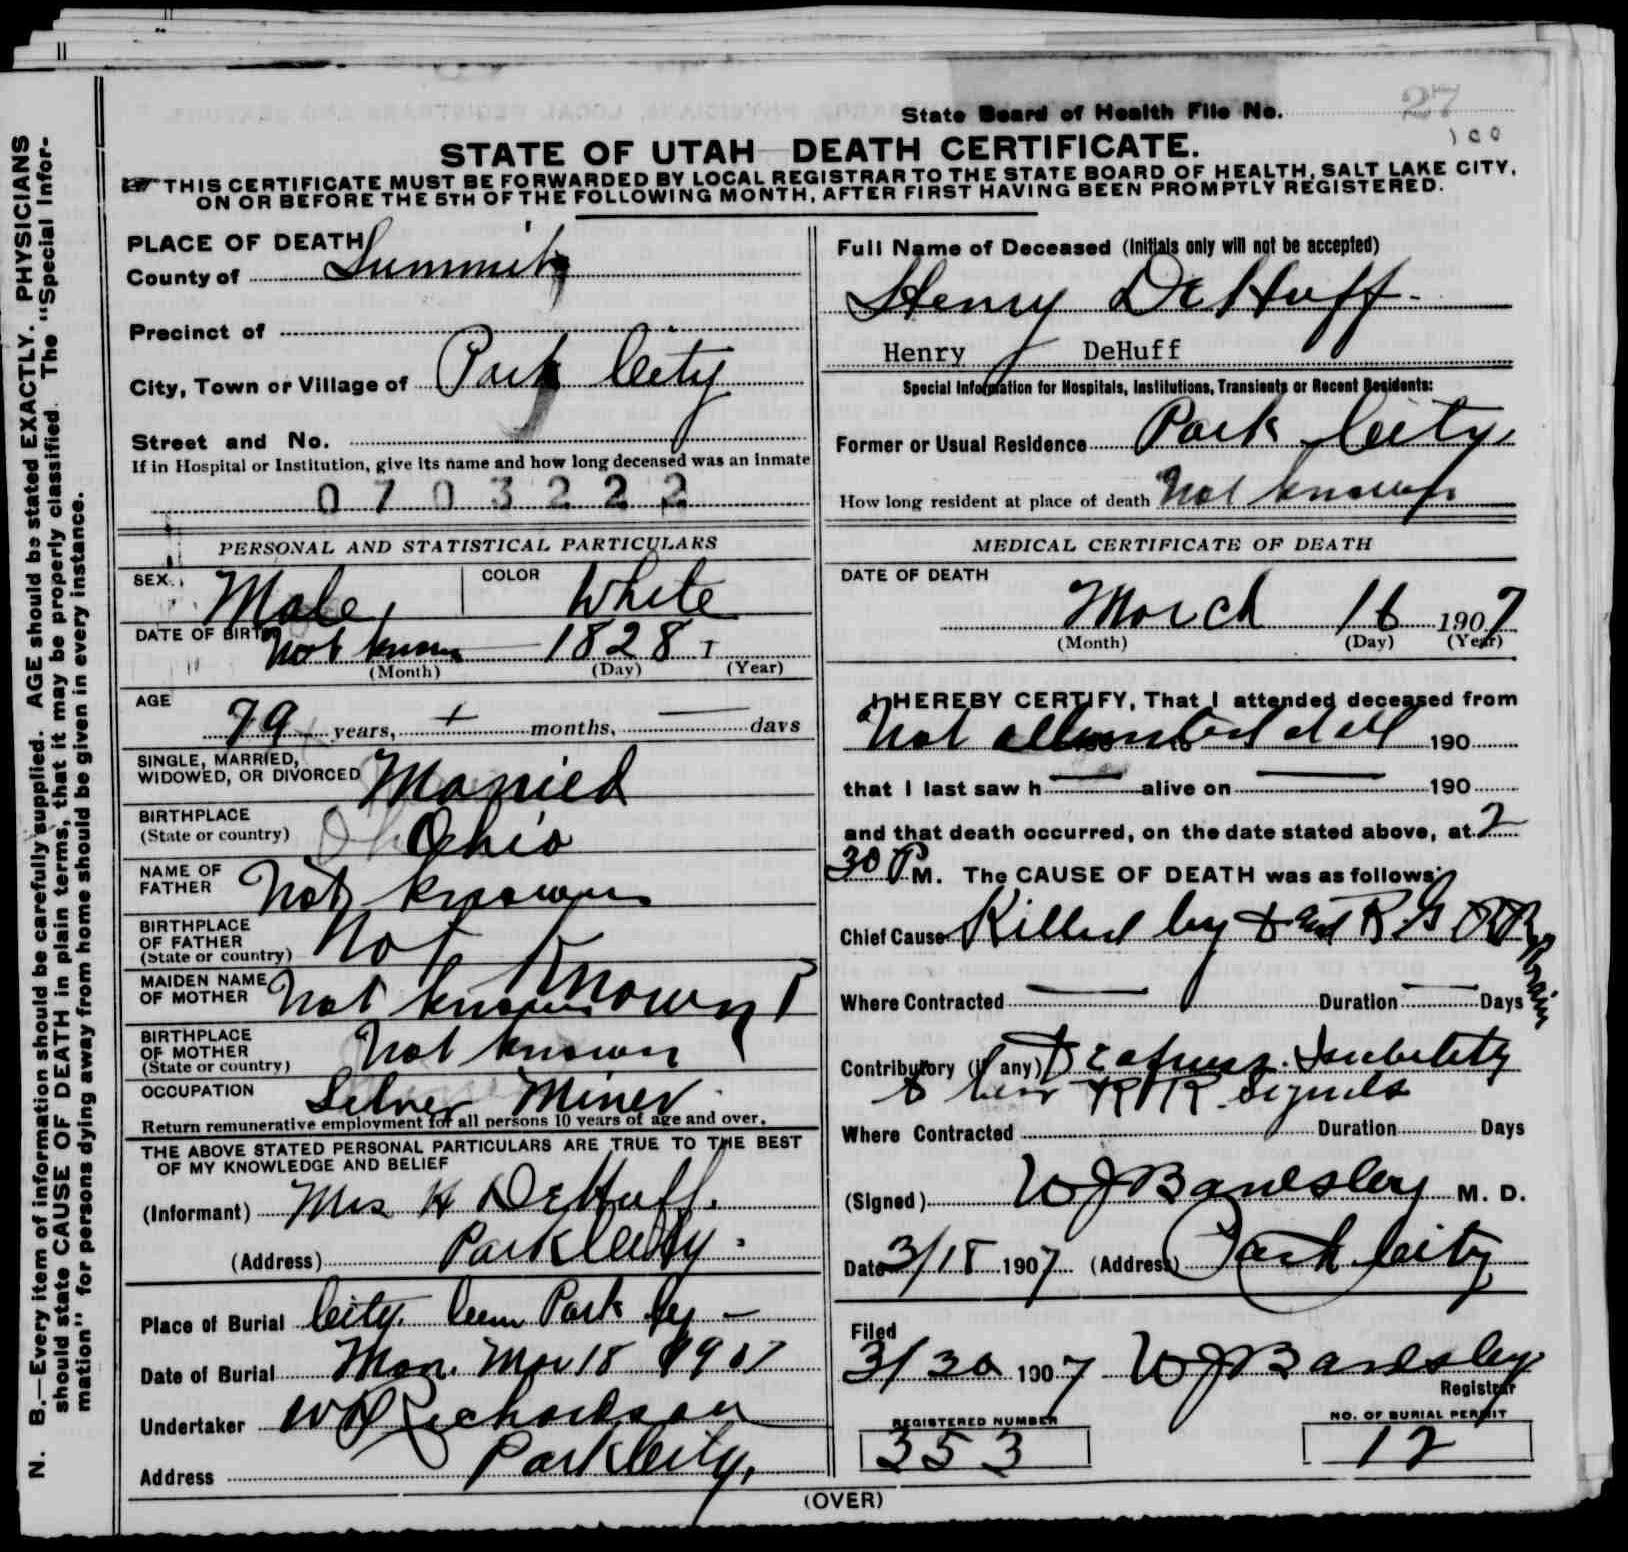 State Board of Health File No. 27
100
STATE OF UTAH DEATH CERTIFICATE.
THIS CERTIFICATE MUST BE FORWARDED BY LOCAL REGISTRAR TO THE STATE BOARD OF HEALTH, SALT LAKE CITY,
ON OR BEFORE THE 5TH OF THE FOLLOWING MONTH, AFTER FIRST HAVING BEEN PROMPTLY REGISTERED.
N. B.—Every item of information should be carefully supplied. AGE should be stated EXACTLY. PHYSICIANS
should state CAUSE OF DEATH in plain terms, that it may be properly classified. The "Special Infor-
mation" for persons dying away from home should be given in every instance.
PLACE OF DEATH
County of Summit
Precinct of
City, Town or Village of Park City
Street and No.
If in Hospital or Institution, give its name and how long deceased was an inmate
0703222
PERSONAL AND STATISTICAL PARTICULARS
SEX Male COLOR White
DATE OF BIRTH Not known 1828
(Month) (Day) (Year)
AGE
79 years, months, days
SINGLE, MARRIED,
WIDOWED, OR DIVORCED Married
BIRTHPLACE
(State or country) Ohio
NAME OF
FATHER Not known
BIRTHPLACE
OF FATHER
(State or country) Not Known
MAIDEN NAME
OF MOTHER Not known
BIRTHPLACE
OF MOTHER
(State or country) Not known
OCCUPATION Silver Miner
Return remunerative employment for all persons 10 years of age and over.
THE ABOVE STATED PERSONAL PARTICULARS ARE TRUE TO THE BEST
OF MY KNOWLEDGE AND BELIEF
(Informant) Mrs H DeHuff.
(Address) Park City.
Place of Burial City. Cem Park Cy
Date of Burial Mon. Mar 18 1907
Undertaker W D Richardson
Address Park City.
Full Name of Deceased (Initials only will not be accepted)
Henry DeHuff
Henry DeHuff
Special Information for Hospitals, Institutions, Transients or Recent Residents:
Former or Usual Residence Park City
How long resident at place of death Not known
MEDICAL CERTIFICATE OF DEATH
DATE OF DEATH
March 16 1907
(Month) (Day) (Year)
I HEREBY CERTIFY, That I attended deceased from
Not attended at all 190
that I last saw h alive on 190
and that death occurred, on the date stated above, at 2
30 P M. The CAUSE OF DEATH was as follows:
Chief Cause Killed by D and R G RR Train
Where Contracted Duration Days
Contributory (if any) Deafness. Inability
to hear RR. Signals
Where Contracted Duration Days
(Signed) W J Bardsley M. D.
Date 3/18 1907 (Address) Park City
Filed
3/30 1907 W J Bardsley
Registrar
REGISTERED NUMBER
353
NO. OF BURIAL PERMIT
12
(OVER)